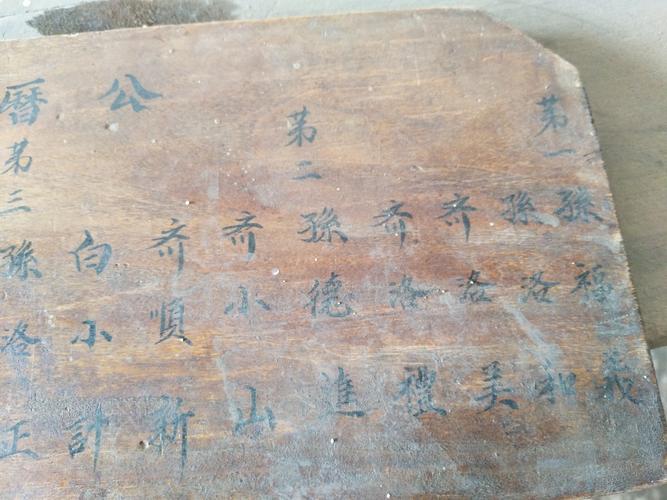 公曆
第一
孫福義
孫洛和
齐洛美
齐洛禮
第二
孫德進
齐小山
齐順新
白小計
第三
孫洛正